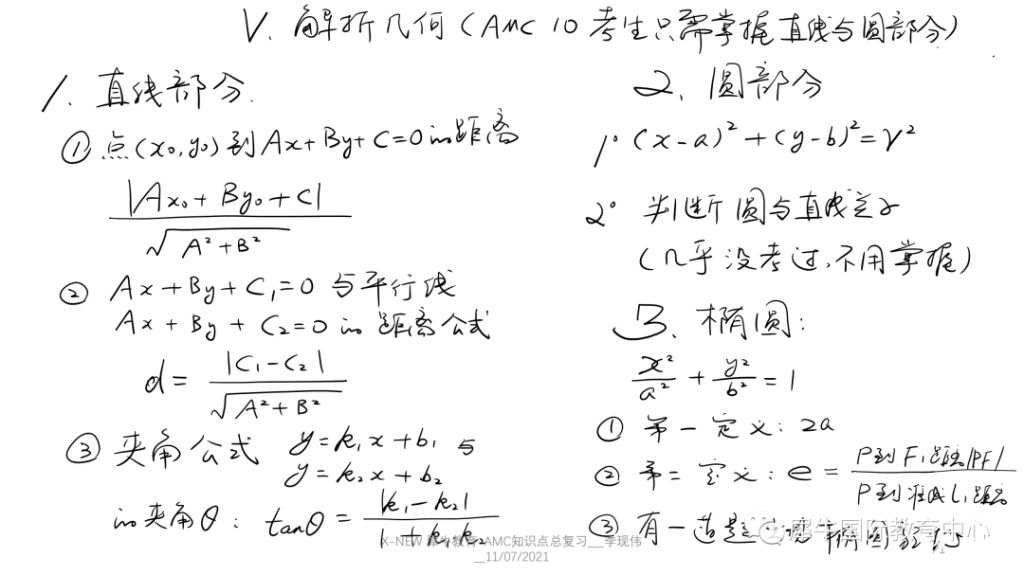 V. 解析几何 (AMC 10 考生只需掌握直线与圆部分)
1. 直线部分.
① 点(x₀,y₀)到Ax+By+C=0的距离
|Ax₀+By₀+C|
√A²+B²
② Ax+By+C₁=0 与平行线
Ax+By+C₂=0 的距离公式
d= |C₁-C₂|
√A²+B²
③ 夹角公式 y=k₁x+b₁ 与
y=k₂x+b₂
的夹角θ: tanθ= |k₁-k₂|
1+k₁k₂
2. 圆部分
1° (x-a)²+(y-b)²=r²
2° 判断圆与直线
(几乎没考过,不用掌握)
3. 椭圆:
x²/a² + y²/b² =1
① 第一定义: 2a
② 第二定义: e= P到F₁距离|PF|
P到准线l₁距离
③ 有一道题 椭圆
犀牛国际教育中心
X-NEW 犀牛教育 AMC知识点总复习__李现伟
__11/07/2021